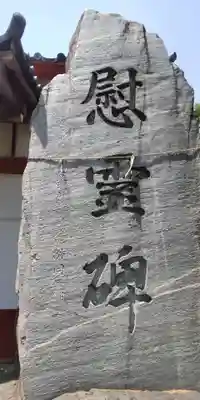 慰霊碑